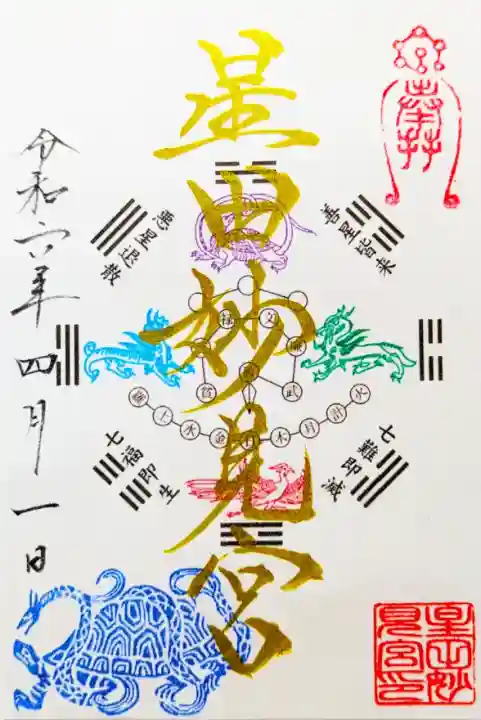 奉拝
星田妙見宮
善星皆来
悪星退散
禄 文 廉
貪 武
羅 土 水 金 日 木 月 計 火
七難即滅
七福即生
令和六年四月一日
星田妙見宮印